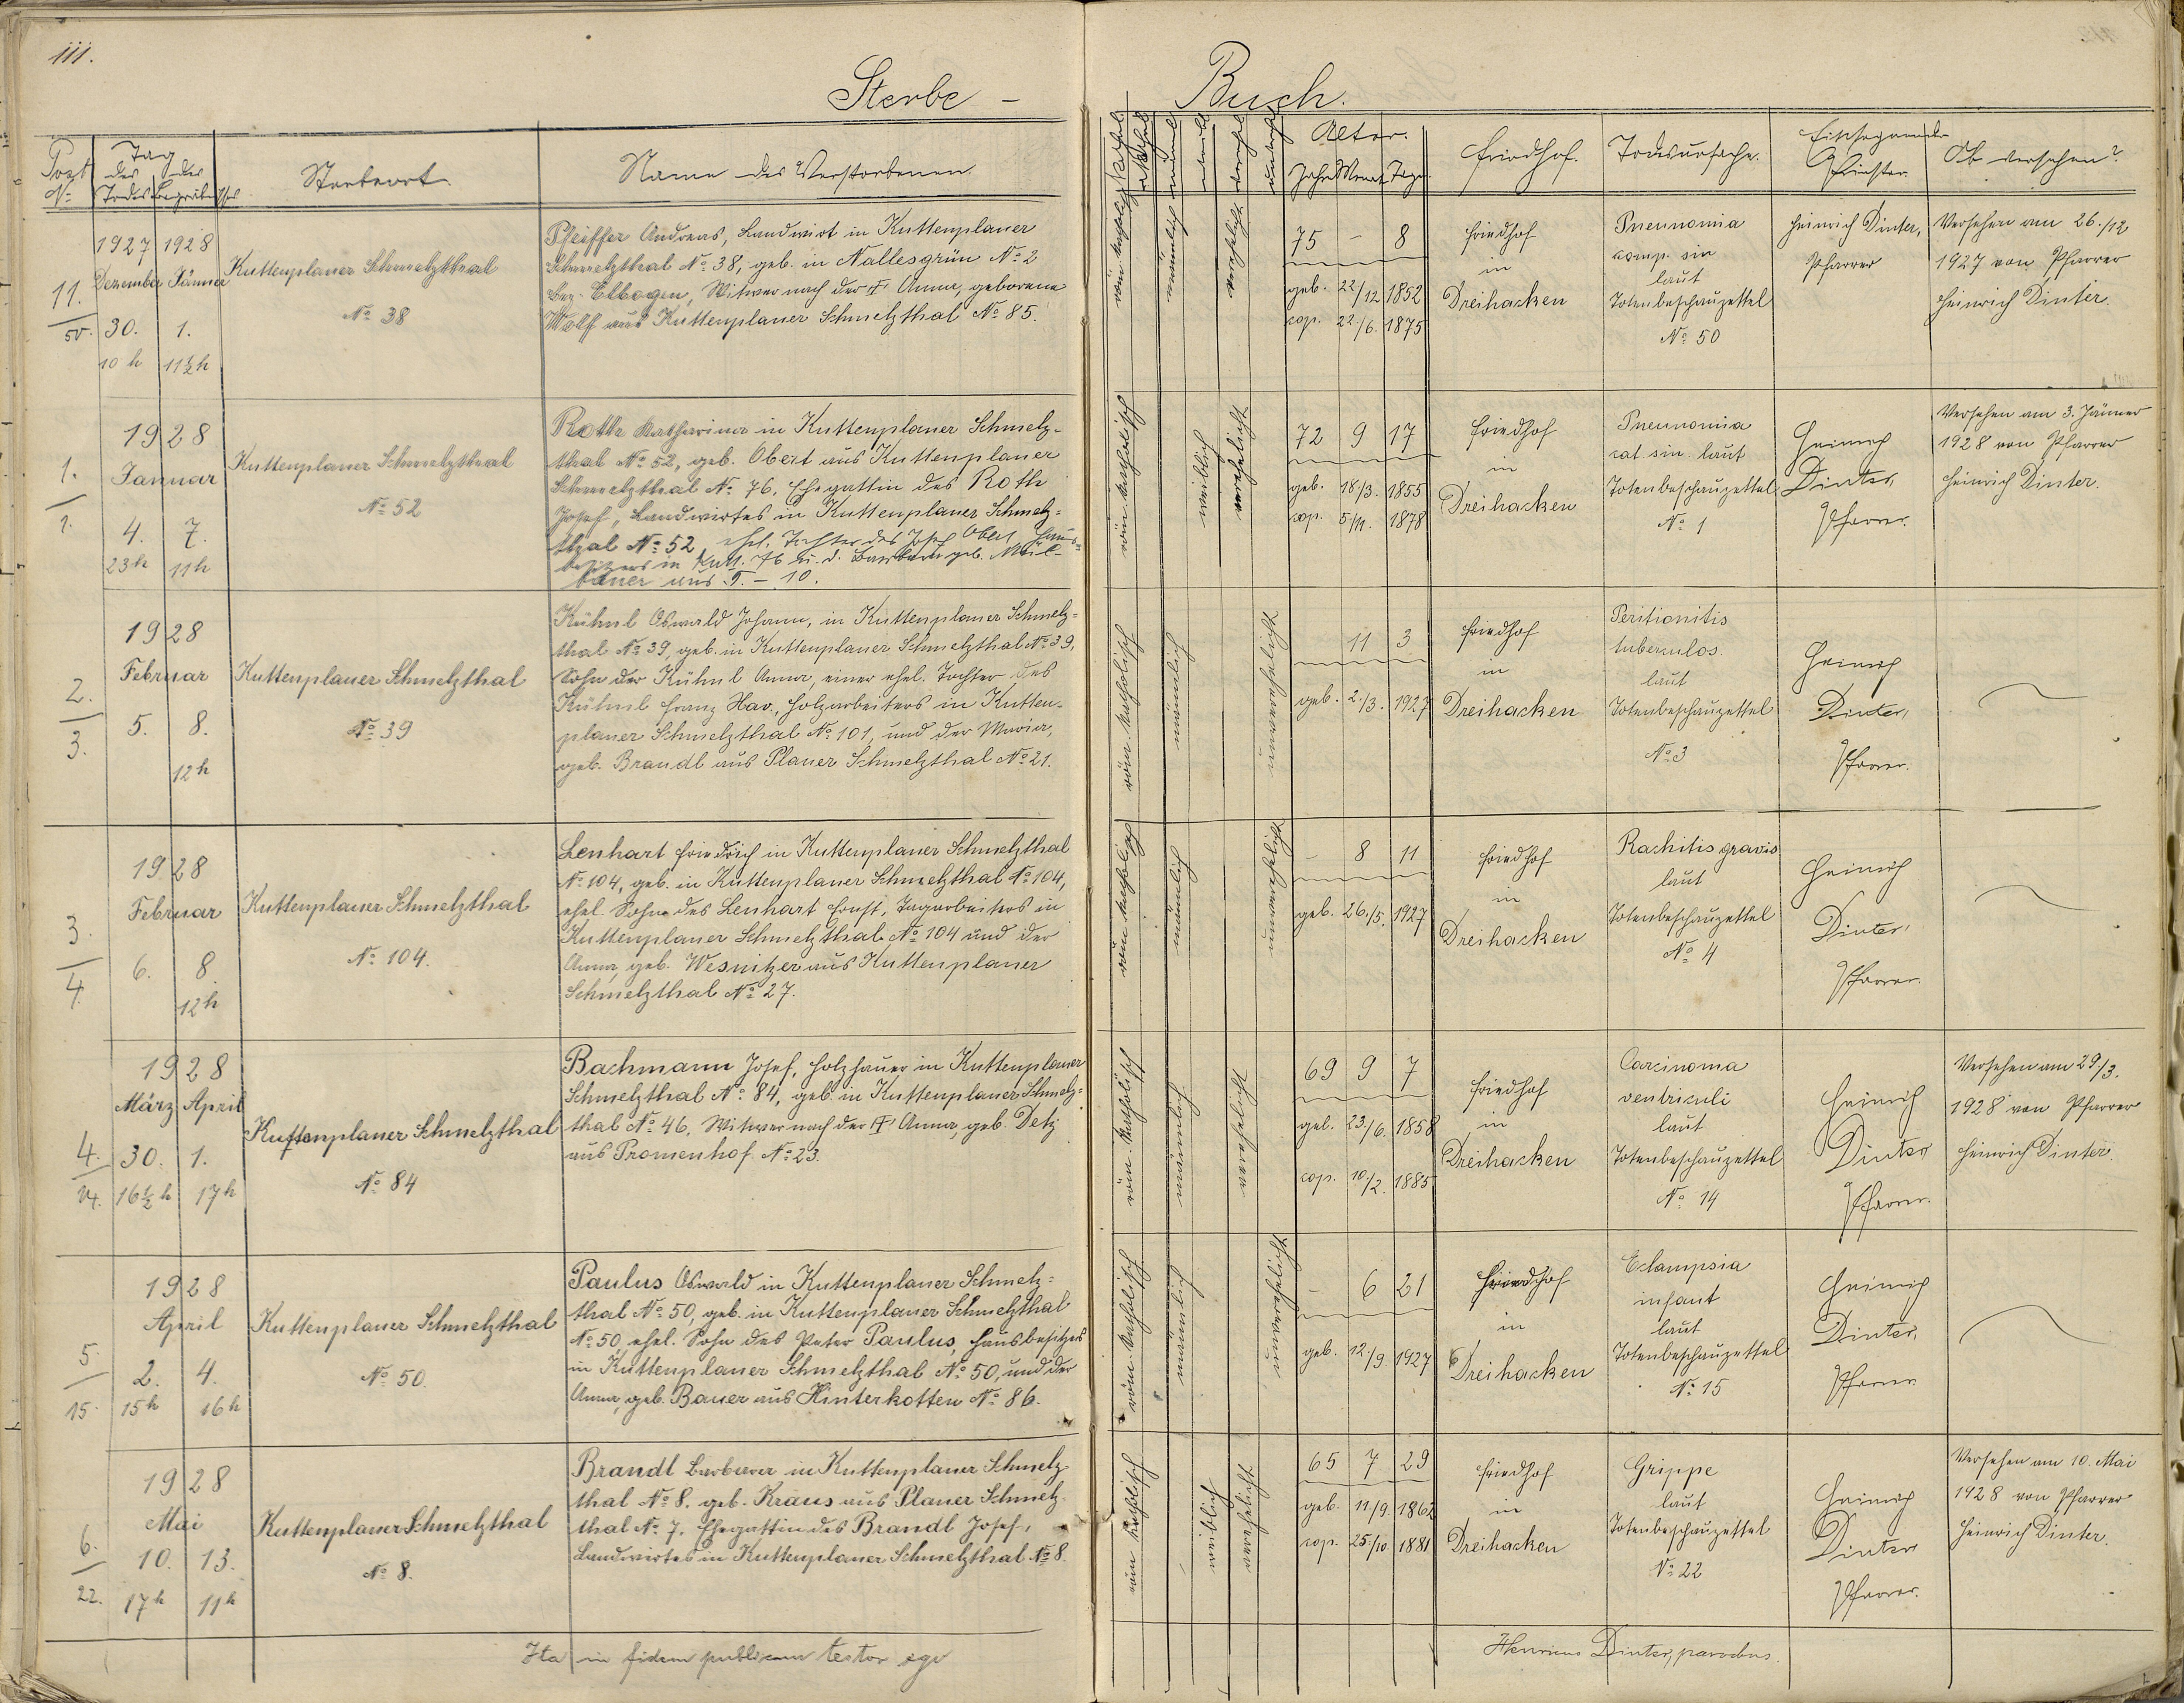 111.
Sterbe - Buch.
Post
No
Tag
des Todes
des Begräbnisses
Sterbeort
Name des Verstorbenen.
Alter.
Jahre Monate Tage
Friedhof.
Todesursache.
Einsegnender
Priester.
Ob versehen?
11.
50.
1927 1928
Dezember Jänner
30. 1.
10 h 11½ h
Kuttenplaner Schmelzthal
No 38
Pfeiffer Andreas, Landwirt in Kuttenplaner
Schmelzthal No 38, geb. in Nallesgrün No 2
Bez. Elbogen, Witwer nach der † Anna, geborene
Wolf aus Kuttenplaner Schmelzthal No 85.
röm. katholisch
männlich
verehelicht
75 - 8
geb. 22/12 1852
cop. 22./6. 1875
Friedhof
in
Dreihacken
Pneunomia
comp. sin
laut
Totenbeschauzettel
No 50
Heinrich Dinter,
Pfarrer
Versehen am 26./12
1927 von Pfarrer
Heinrich Dinter.
1.
1.
1928
Januar
4. 7.
23h 11h
Kuttenplaner Schmelzthal
No 52
Roth Katharina in Kuttenplaner Schmelz-
thal No 52, geb. Obert aus Kuttenplaner
Schmelzthal No 76, Ehegattin des Roth
Josef, Landwirtes in Kuttenplaner Schmelz-
thal No 52, ehel. Tochter des Josef Obert, Haus-
besitzers in Kutt. 76 u. d. Barbara geb. Mül-
bauer aus T. - 10.
röm. katholisch
weiblich
verehelicht
72 9 17
geb. 18/3. 1855
cop. 5/11. 1878
Friedhof
in
Dreihacken
Pneunomia
cat. sin. laut
Totenbeschauzettel
No 1
Heinrich
Dinter,
Pfarrer.
Versehen am 3. Jänner
1928 von Pfarrer
Heinrich Dinter.
2.
3.
1928
Februar
5. 8.
12h
Kuttenplaner Schmelzthal
No 39
Kühnl Oswald Johann, in Kuttenplaner Schmelz-
thal No 39, geb. in Kuttenplaner Schmelzthal No 39,
Sohn der Kühnl Anna, einer ehel. Tochter des
Kühnl Franz Xav., Holzarbeiters in Kutten-
planer Schmelzthal No 101, und der Maria,
geb. Brandl aus Planer Schmelzthal No 21.
röm. katholisch
männlich
unverehelicht
11 3
geb. 2./3. 1927
Friedhof
in
Dreihacken
Peritionitis
tuberculos.
laut
Totenbeschauzettel
No 3
Heinrich
Dinter,
Pfarrer.
3.
4.
1928
Februar
6. 8.
12h
Kuttenplaner Schmelzthal
No 104.
Lenhart Friedrich in Kuttenplaner Schmelzthal
No 104, geb. in Kuttenplaner Schmelzthal No 104,
ehel. Sohn des Lenhart Ernst, Tagarbeiters in
Kuttenplaner Schmelzthal No 104 und der
Anna, geb. Wesnitzer aus Kuttenplaner
Schmelzthal No 27.
röm. katholisch
männlich
unverehelicht
- 8 11
geb. 26./5. 1927
Friedhof
in
Dreihacken
Rachitis gravis
laut
Totenbeschauzettel
No 4
Heinrich
Dinter,
Pfarrer.
4.
14.
1928
März April
30. 1.
16½ h 17h
Kuttenplaner Schmelzthal
No 84
Bachmann Josef, Holzhauer in Kuttenplaner
Schmelzthal No 84, geb. in Kuttenplaner Schmelz-
thal No 46, Witwer nach der † Anna, geb. Detz
aus Promenhof No 23.
röm. katholisch
männlich
verehelicht
69 9 7
geb. 23./6. 1858
cop. 10./2. 1885
Friedhof
in
Dreihacken
Carcinoma
ventriculi
laut
Totenbeschauzettel
No 14
Heinrich
Dinter
Pfarrer.
Versehen am 29/3.
1928 von Pfarrer
Heinrich Dinter.
5.
15.
1928
April
2. 4.
15h 16h
Kuttenplaner Schmelzthal
No 50
Paulus Oswald in Kuttenplaner Schmelz-
thal No 50, geb. in Kuttenplaner Schmelzthal
No 50, ehel. Sohn des Peter Paulus, Hausbesitzers
in Kuttenplaner Schmelzthal No 50, und der
Anna, geb. Bauer aus Hinterkotten No 86.
röm. katholisch
männlich
unverehelicht
- 6 21
geb. 12./9. 1927
Friedhof
in
Dreihacken
Eclampsia
infant
laut
Totenbeschauzettel
No 15
Heinrich
Dinter,
Pfarrer
6.
22.
1928
Mai
10. 13.
17h 11h
Kuttenplaner Schmelzthal
No 8.
Brandl Barbara in Kuttenplaner Schmelz-
thal No 8. geb. Kraus aus Planer Schmelz-
thal No 7, Ehegattin des Brandl Josef,
Landwirtes in Kuttenplaner Schmelzthal No 8.
röm. katholisch
weiblich
verehelicht
65 7 29
geb. 11/9. 1862
cop. 25./10. 1881
Friedhof
in
Dreihacken
Grippe
laut
Totenbeschauzettel
No 22
Heinrich
Dinter
Pfarrer.
Versehen am 10. Mai
1928 von Pfarrer
Heinrich Dinter.
Ita in fidem publicam testor ego
Henricus Dinter, parochus.